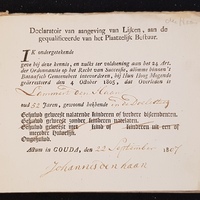 Declaratoir van aangeving van Lijken, aan de
gequalificeerde van het Plaatzelijk Bestuur.
IK ondergetekende
geve bij deze kennis, en zulks ter voldoening aan het 24 Art.
der Ordonnantie op het Recht van Successie, alomme binnen 't
Bataafsch Gemeenebest intevoorderen, bij Hun Hoog Mogende
gearresteerd den 4 October 1805, dat Overleden is
oud 52 Jaren, gewoond hebbende in de
Gehuwd geweest nalatende kinderen of verdere descendenten.
Gehuwd geweest zonder kinderen natelaten.
Gehuwd geweest kind of kinderen uit een of
meerder Huwelijk.
Ongehuwd.
Actum in GOUDA, den 22 September 1807
Johannis den haan